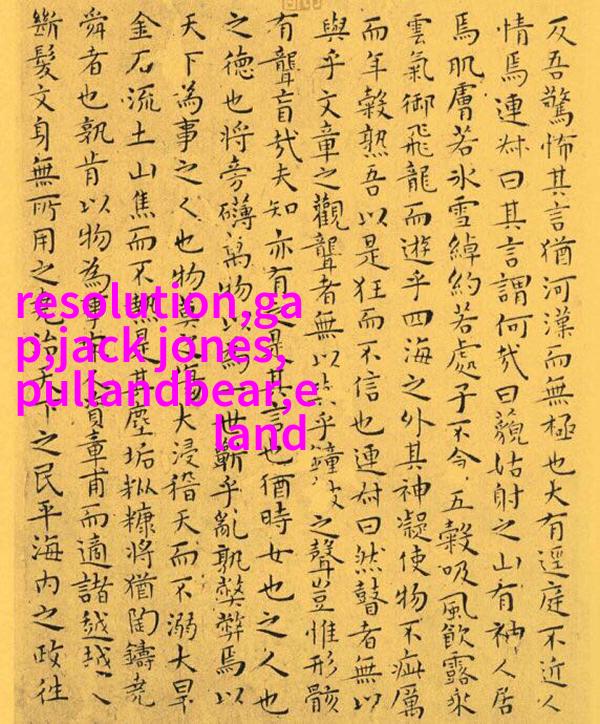 反吾驚怖其言猶河漢而無極也大有逕庭不近人
情焉連叔曰其言謂何哉曰藐姑射之山有神人居
焉肌膚若氷雪綽約若處子不食五穀吸風飲露乘
雲氣御飛龍而遊乎四海之外其神凝使物不疵厲
而年穀熟吾以是狂而不信也連叔曰然瞽者無以
與乎文章之觀聾者無以乎鐘鼓之聲豈惟形骸
有聾盲哉夫知亦有是其言也猶時女也之人也
之德也將旁礴萬物以為一世蘄乎亂孰弊弊焉以
天下為事之人也物莫傷大浸稽天而不溺大旱
金石流土山焦而不熱是其塵垢粃糠將猶陶鑄堯
舜者也孰肯以物為事人資章甫而適諸越越人
斷髮文身無所用之堯治天下之民平海內之政往
resolution,ga
p,jack jones,
pullandbear,e
land